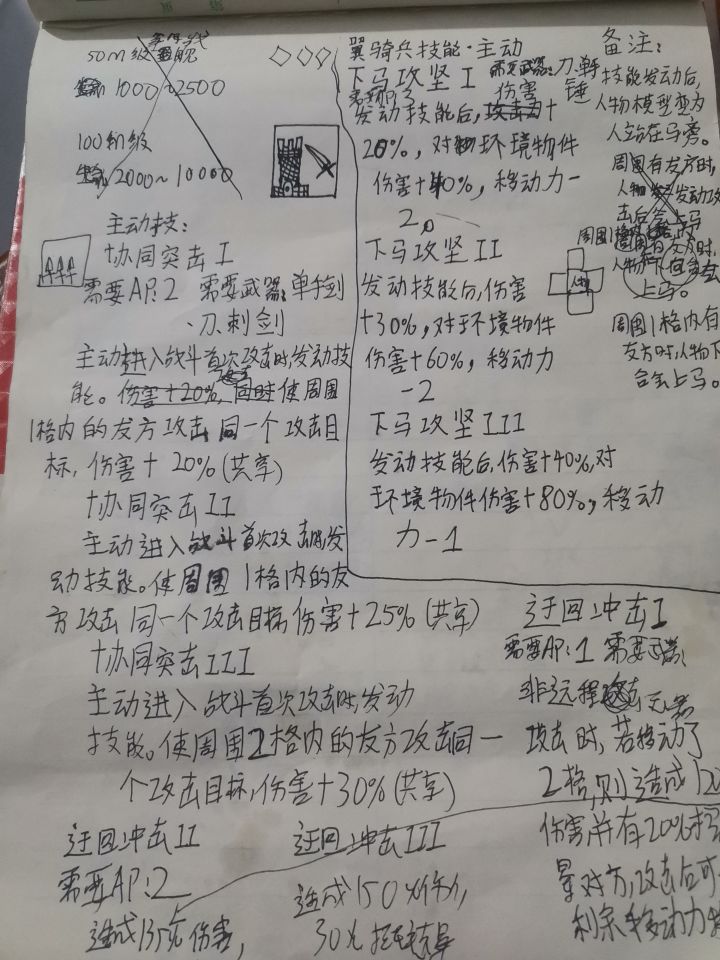 50m级
生命1000~2500
100m级
生命2000~10000
主动技:
协同突击I
需要AP:2 需要武器:单手剑
、刀、刺剑
主动进入战斗首次攻击时,发动技
能。伤害+20%,同时使周围
1格内的友方攻击同一个攻击目
标,伤害+20%(共享)
协同突击II
主动进入战斗首次攻击时,发
动技能。使周围1格内的友
方攻击同一个攻击目标,伤害+25%(共享)
协同突击III
主动进入战斗首次攻击时,发动
技能。使周围2格内的友方攻击同一
个攻击目标,伤害+30%(共享)
翼骑兵技能·主动
下马攻坚I 需要武器:刀、斧、
锤
伤害
发动技能后,攻击力+
20%,对环境物件
伤害+40%,移动力-
2。
下马攻坚II
发动技能后,伤害
+30%,对于环境物件
伤害+60%,移动力
-2
下马攻坚III
发动技能后,伤害+40%,对
环境物件伤害+80%,移动
力-1
备注:
技能发动后,
人物模型变为
人站在马旁。
周围有友方时,
人物发动攻
击后会上马
周围1格内
周围有友方时,
人物下回合会
上马。
人物
周围1格内有
友方时,人物下
合会上马。
迂回冲击I
需要AP:1 需要武器:
非远程武器
攻击时,若移动了
2格,则造成120
伤害并有20%
晕对方,攻击后可
利余移动力
迂回冲击II
需要AP:2
造成135%伤害,
迂回冲击III
造成150%伤害,
30%